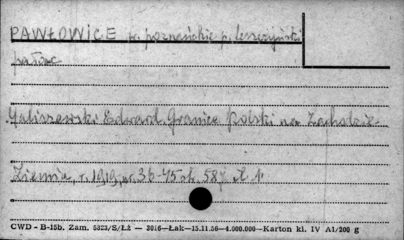 PAWŁOWICE w. poznańskie p. leszczyński
pałac
Galiszewski Edward. Granice Polski na Zachodzie.
Ziemia, r. 1919, nr. 36-45 sk. 587 il. 1
CWD - B-15b. Zam. 5323/S/Łż — 2016—Łak—15.11.56—4.000.000—Karton kl. IV A1/200 g